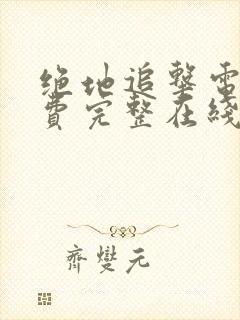 绝地追擊電
費完整在綫
齊燮元